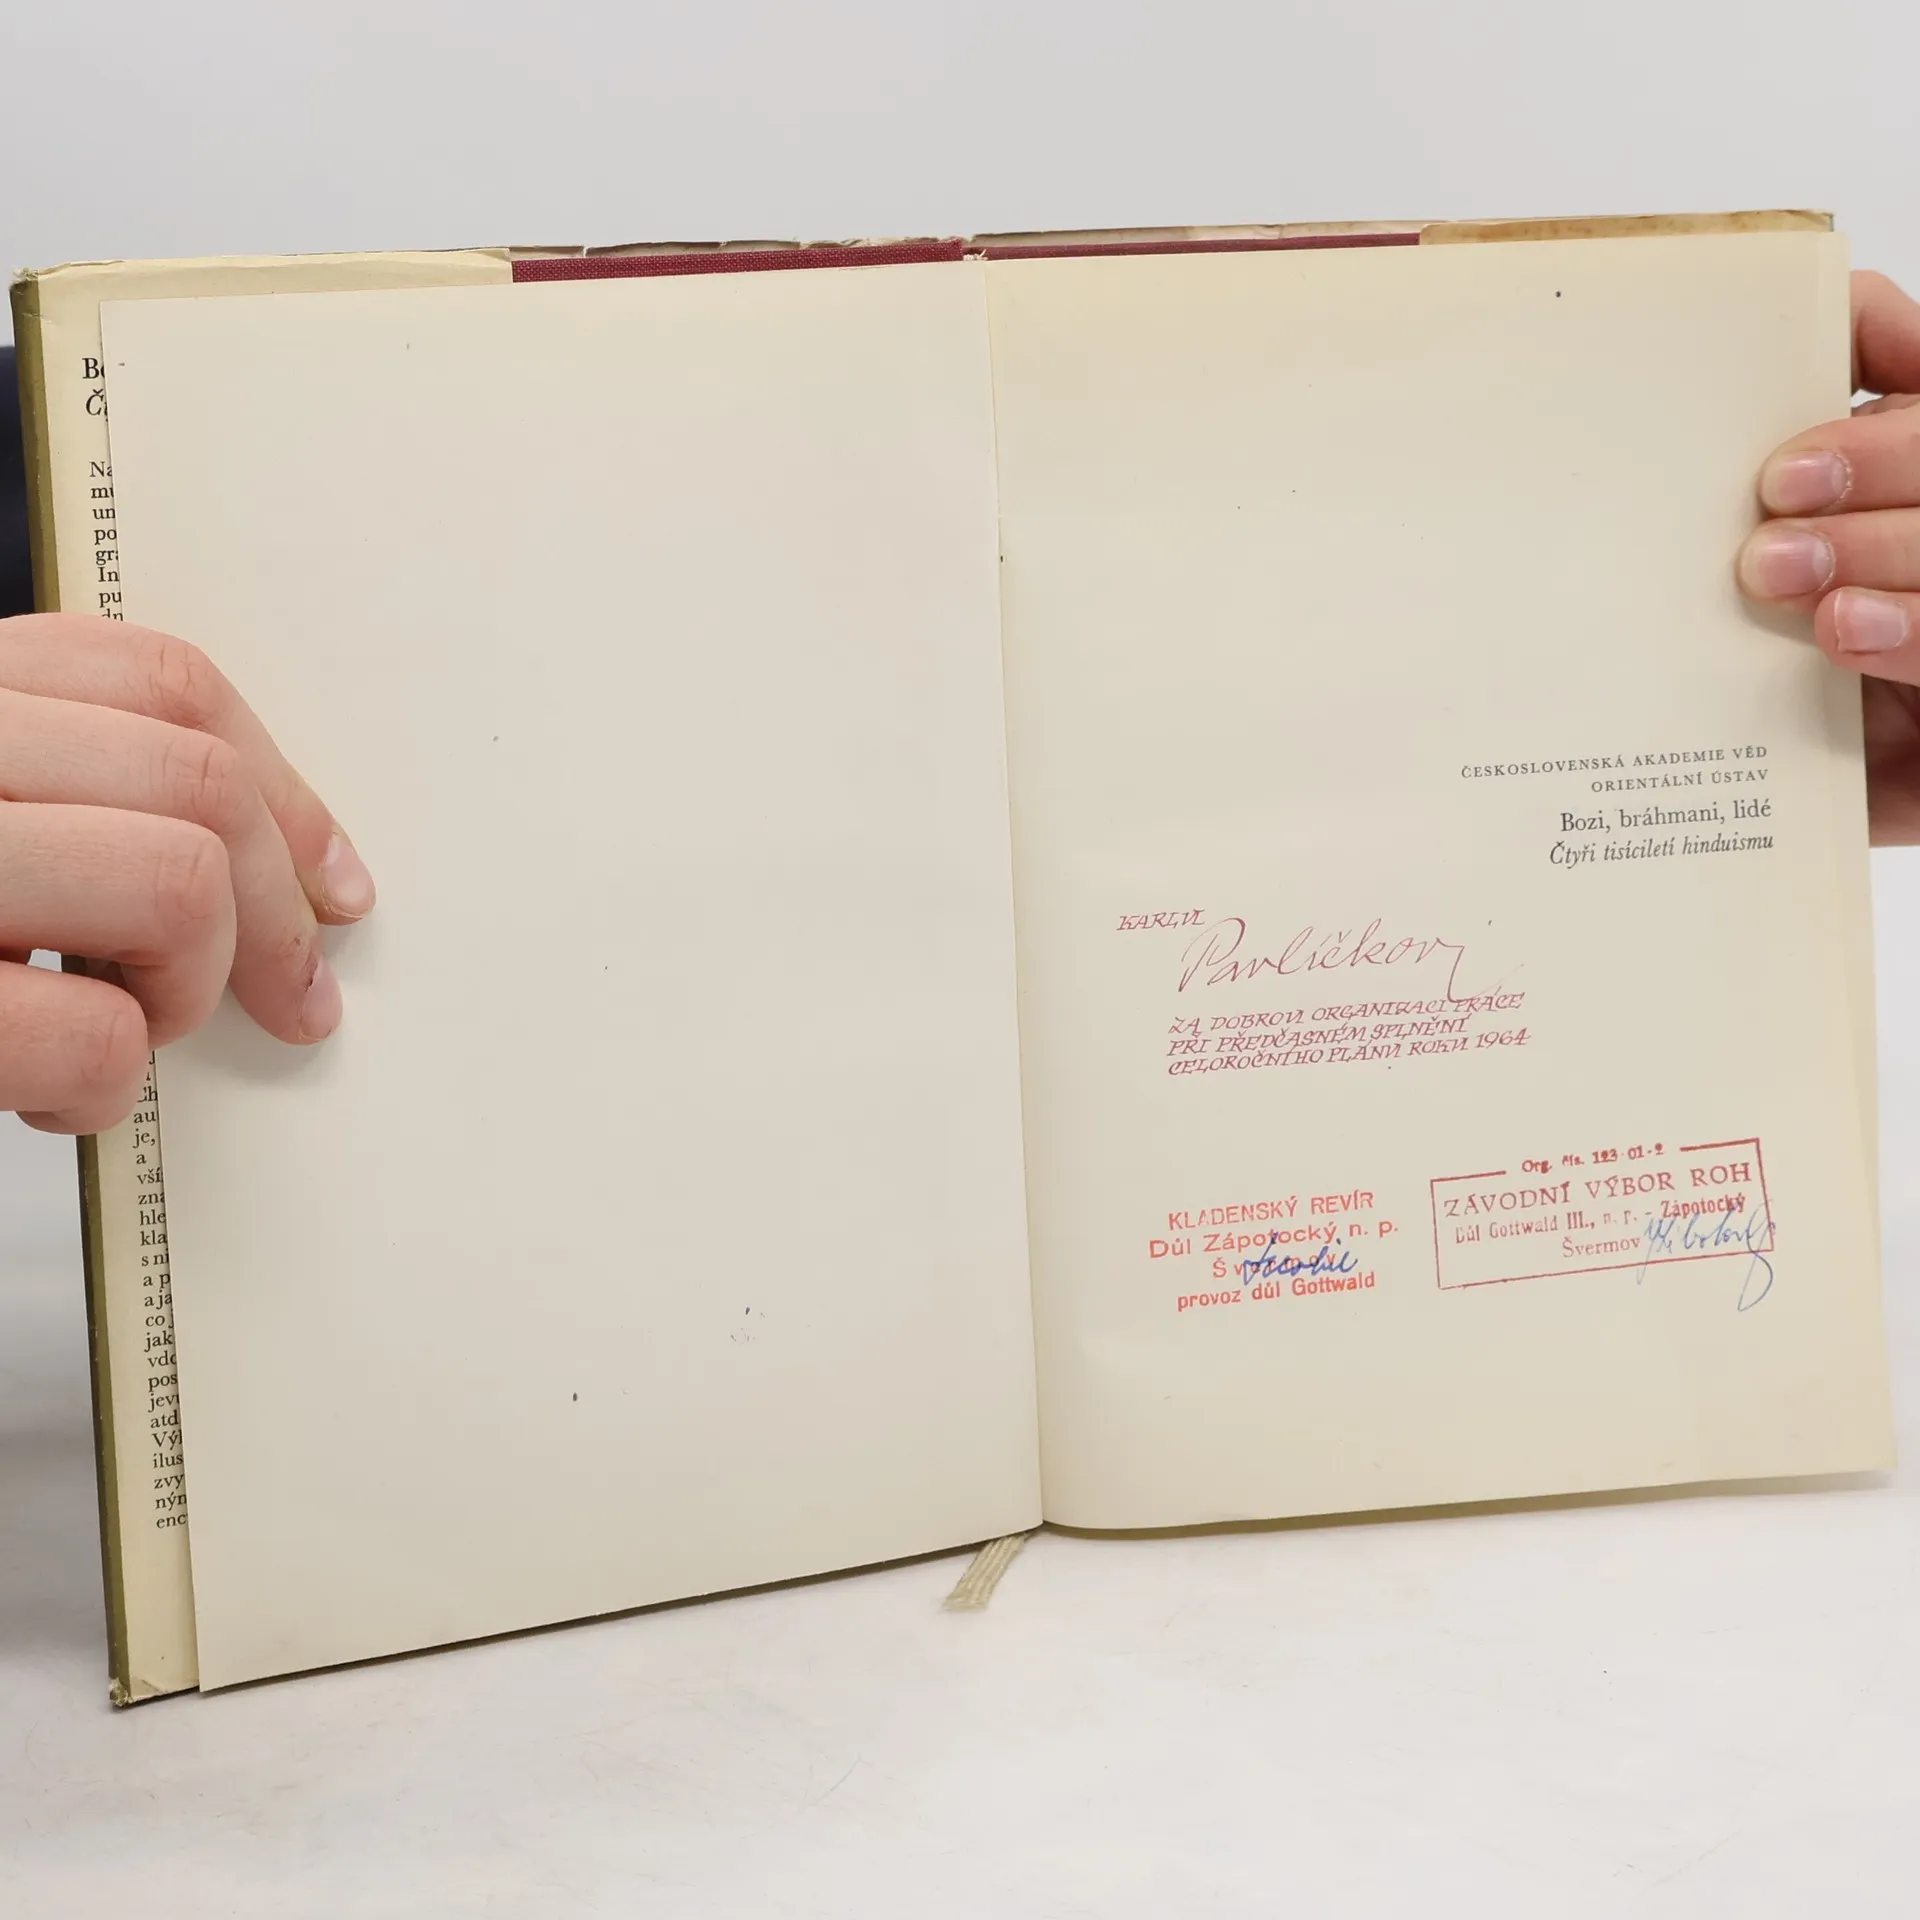 Na
po
In
pu
Ch
au
je,
a
vší
hle
kla
s ni
a p
co
jak
pos
atd
ilus
zvy
ným
enc
ČESKOSLOVENSKÁ AKADEMIE VĚD
ORIENTÁLNÍ ÚSTAV
Bozi, bráhmani, lidé
Čtyři tisíciletí hinduismu
KARLU
Pavlíčkovi
ZA DOBROU ORGANIZACI PRÁCE
PŘI PŘEDČASNÉM SPLNĚNÍ
CELOROČNÍHO PLÁNU ROKU 1964
KLADENSKÝ REVÍR
Důl Zápotocký, n. p.
Švermov
provoz důl Gottwald
Org. čís. 123 01-2
ZÁVODNÍ VÝBOR ROH
Důl Gottwald III., n. p. - Zápotocký
Švermov